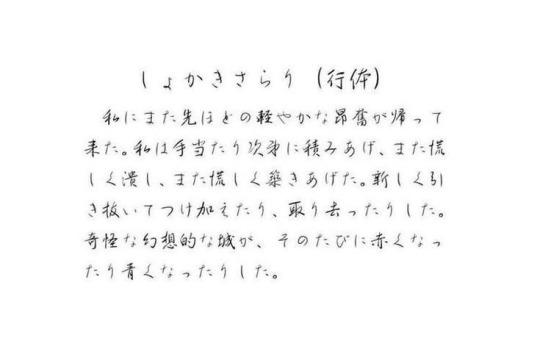 しょかきさらり（行体）
私にまた先ほどの軽やかな昂奮が帰って
来た。私は手当たり次第に積みあげ、また慌
しく潰し、また慌しく築きあげた。新しく引
き抜いてつけ加えたり、取り去ったりした。
奇怪な幻想的な城が、そのたびに赤くなっ
たり青くなったりした。